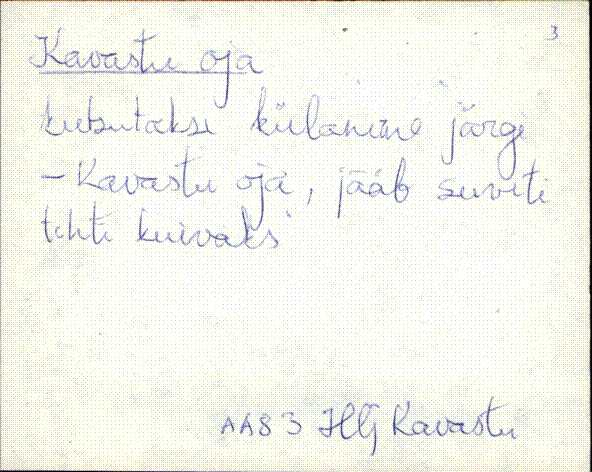 3
Kavastu oja
kutsutakse külanime järgi
- Kavastu oja, jääb suviti
tihti kuivaks
AA83 HljKavastu